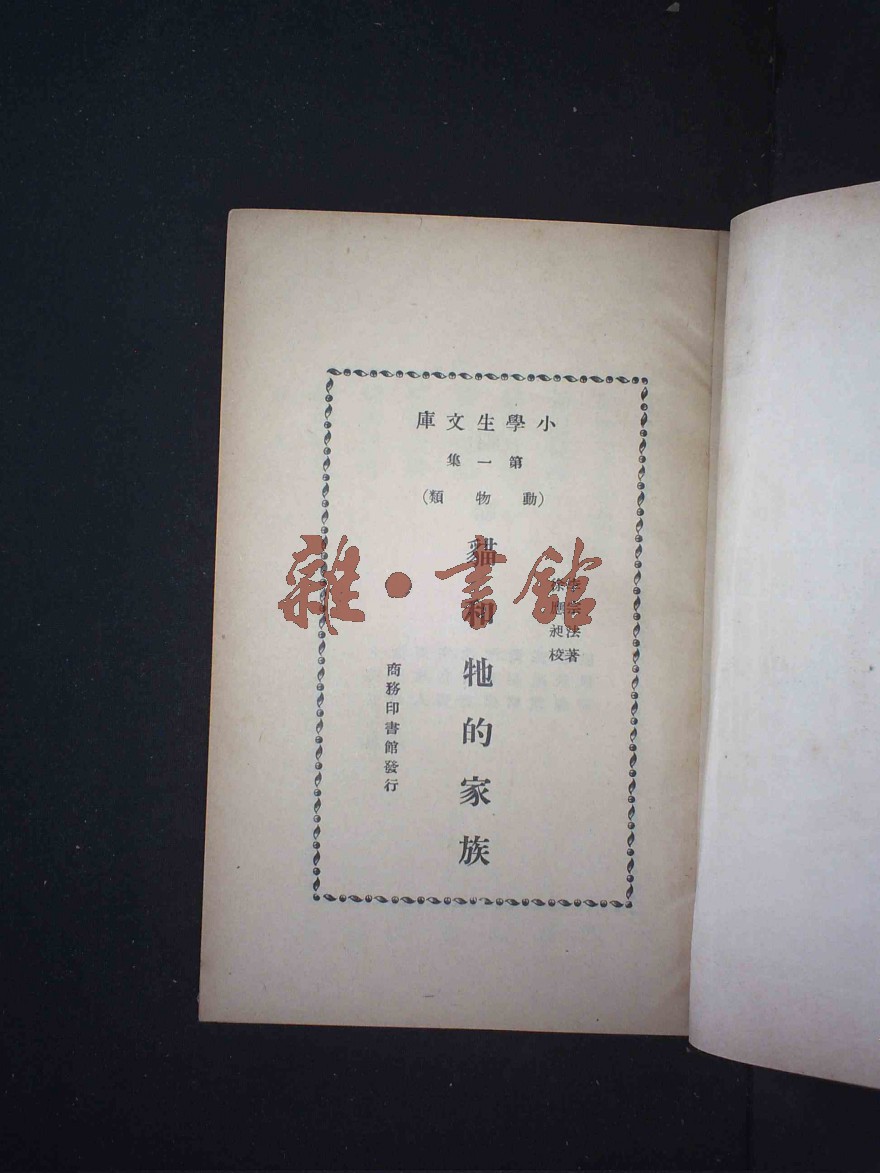 小學生文庫
第一集
(動物類)
李宗法著
徐應昶校
貓和牠的家族
商務印書館發行
雜·書館